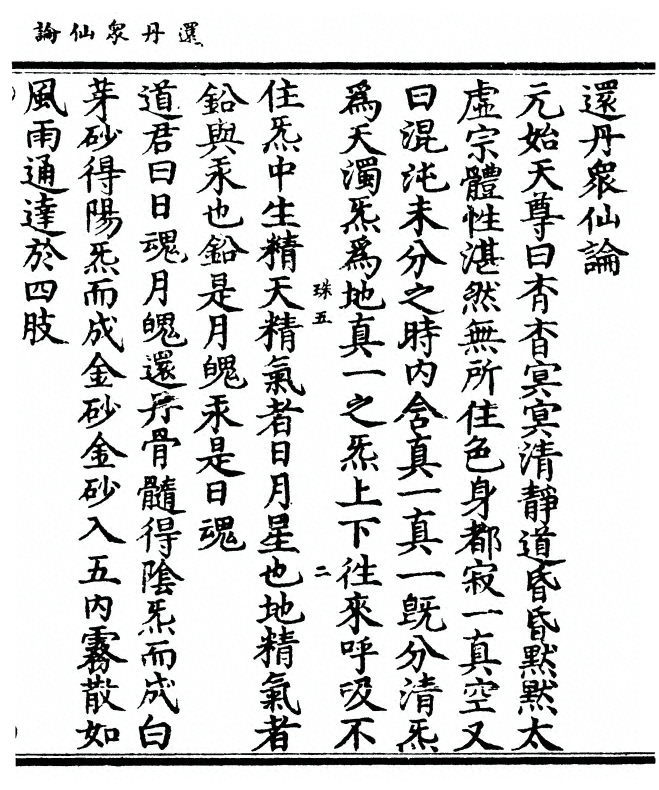 還丹衆仙論
還丹衆仙論
元始天尊曰杳杳冥冥清靜道昏昏默默太
虛宗體性湛然無所住色身都寂一真空又
曰混沌未分之時内含真一真一既分清炁
爲天濁炁爲地真一之炁上下往來呼吸不
珠五 二
住炁中生精天精氣者日月星也地精氣者
鉛與汞也鉛是月魄汞是日魂
道君曰日魂月魄還丹骨髓得陰炁而成白
芽砂得陽炁而成金砂金砂入五内霧散如
風雨通達於四肢